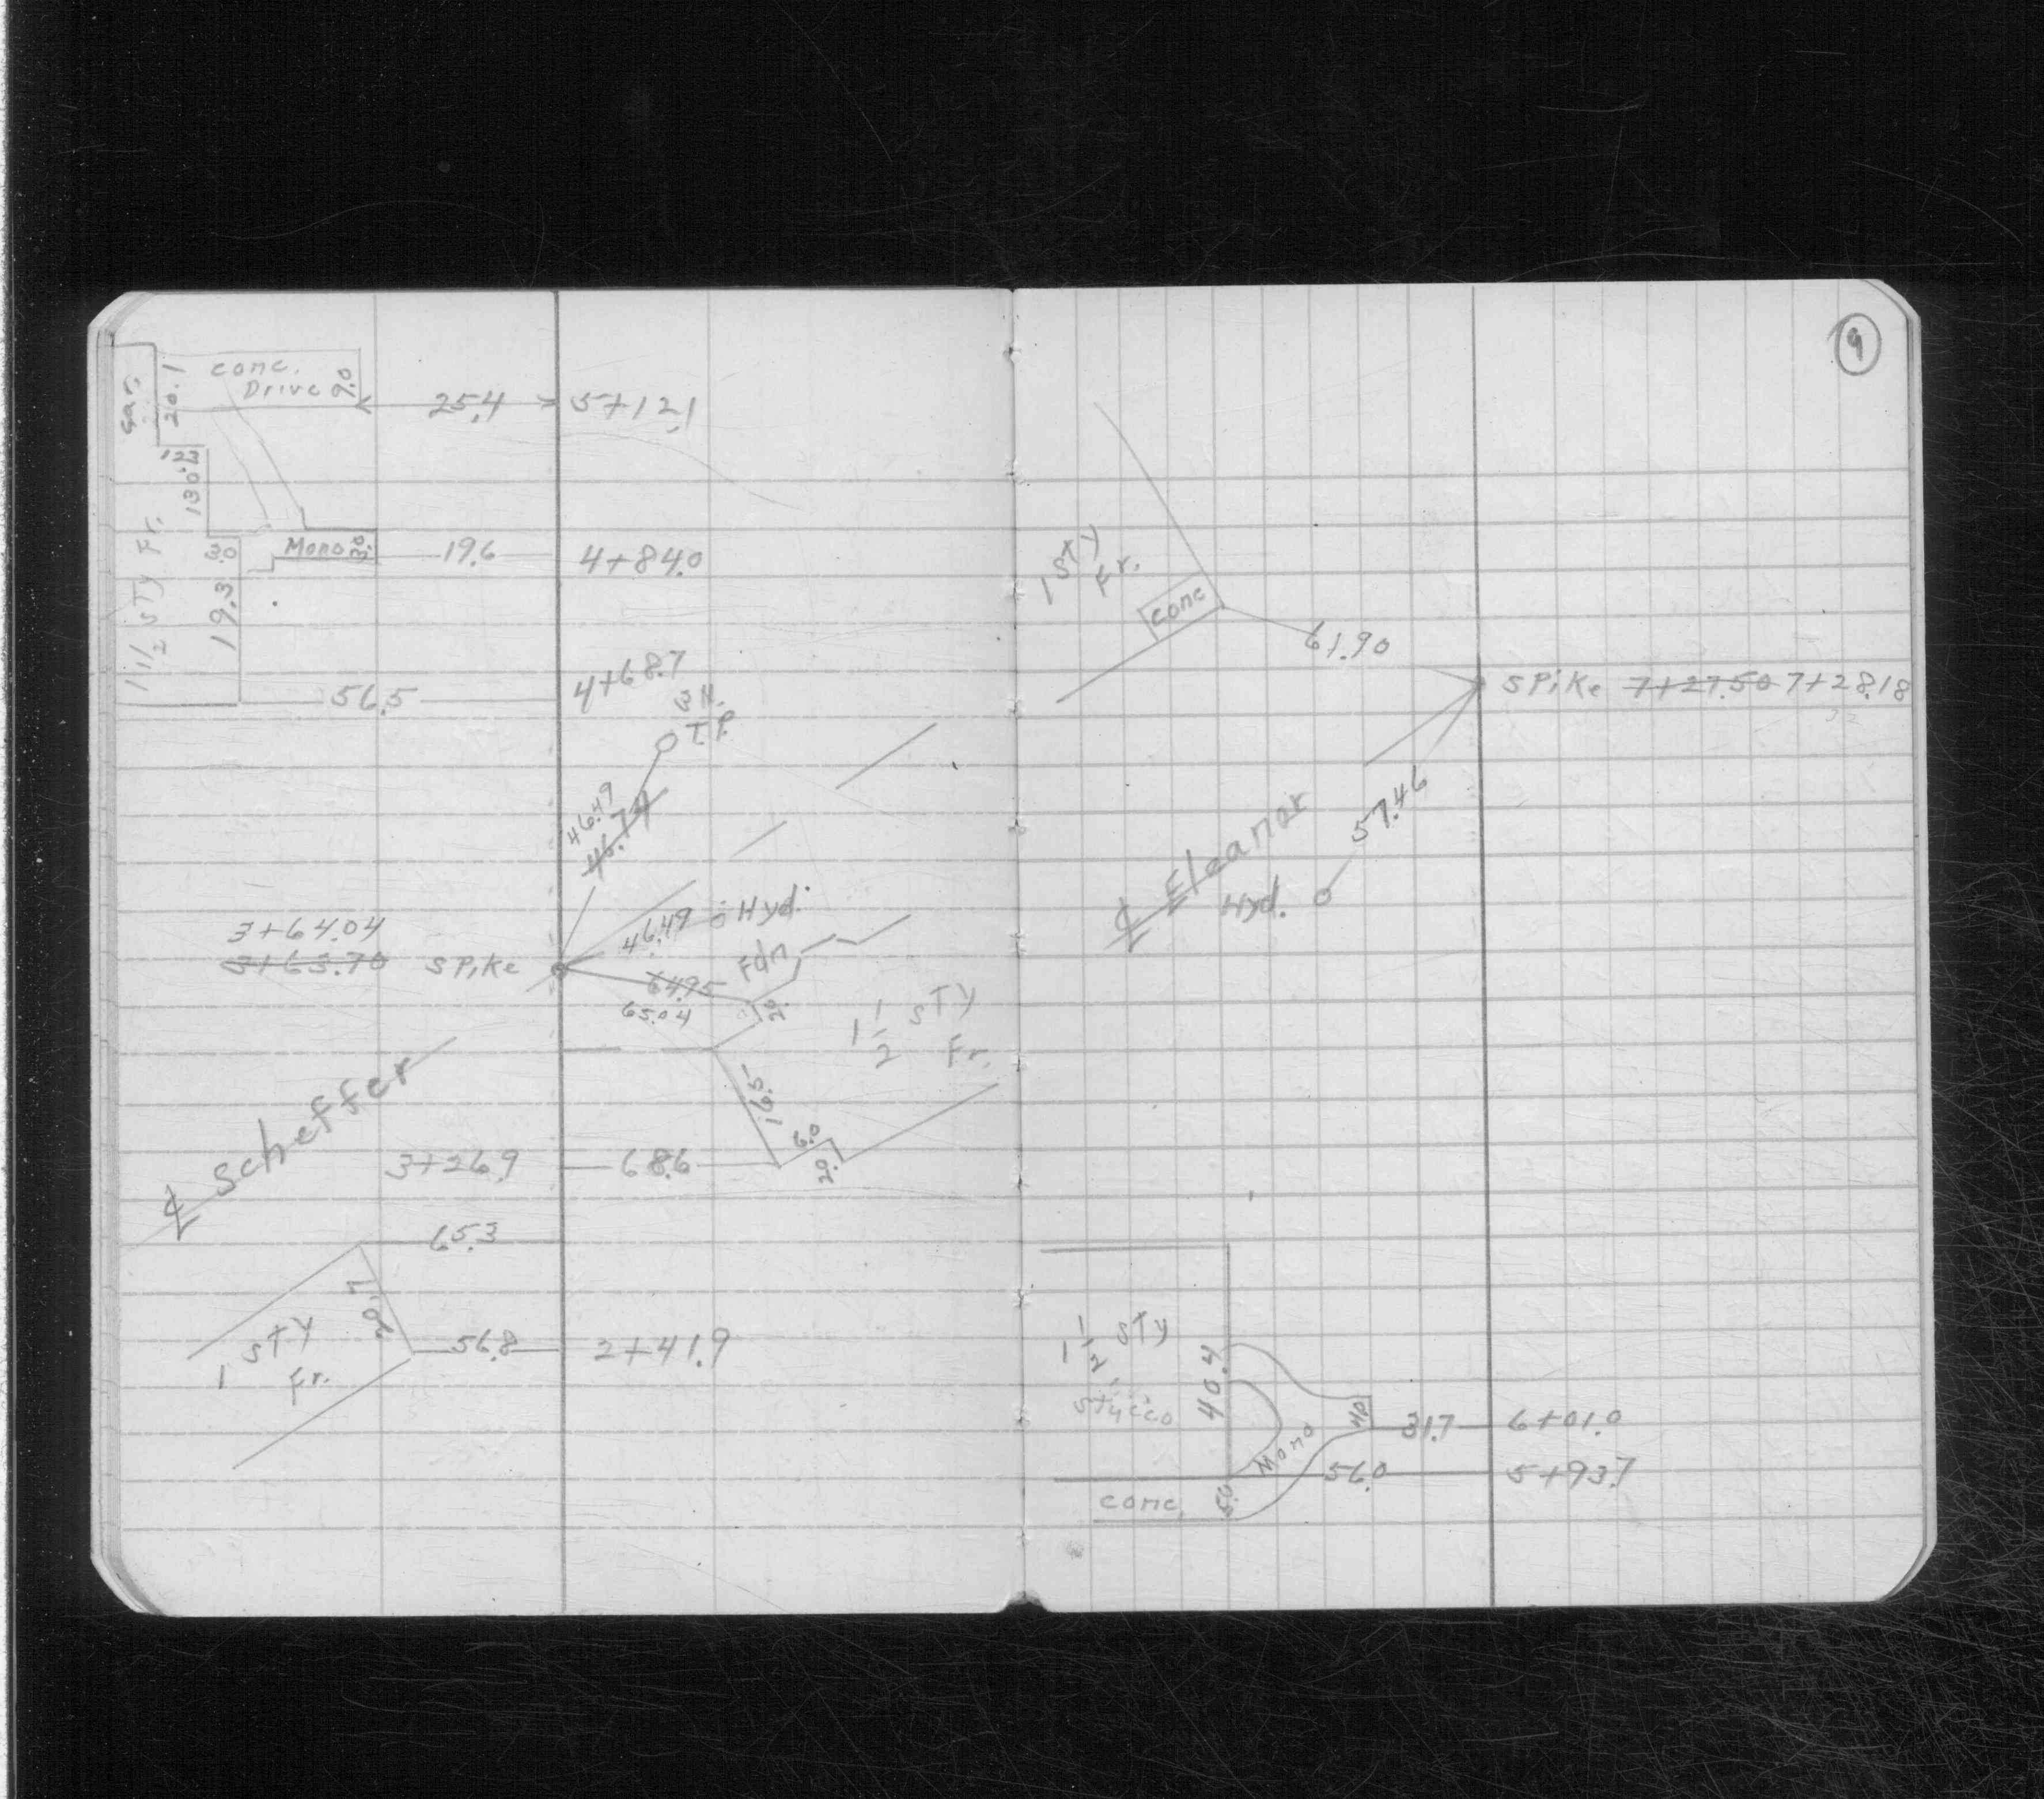 conc.
Drive 9.0
Gar.
20.1
25.4 5+12.1
12.3
130.2
Mono 3.0 19.6 4+84.0
3.0
1 1/2 STY Fr.
19.3
56.5 4+68.7
T.P.
46.49
46.74
46.49 Hyd.
3+64.04
3+63.70 SPiKe
64.95 Fdn
65.04
2.0
1 1/2 STY
Fr.
16.5
6.0
℄ Scheffer
3+26.9 68.6
65.3
20.7
1 STY
Fr.
56.8 2+41.9
9
1 STY
Fr.
conc
61.90
SPiKe 7+27.50 7+28.18
57.46
℄ Eleanor
Hyd.
1 1/2 STY
Stucco
40.4
31.7 6+01.0
Mono
56.0 5+93.7
conc.
5.0